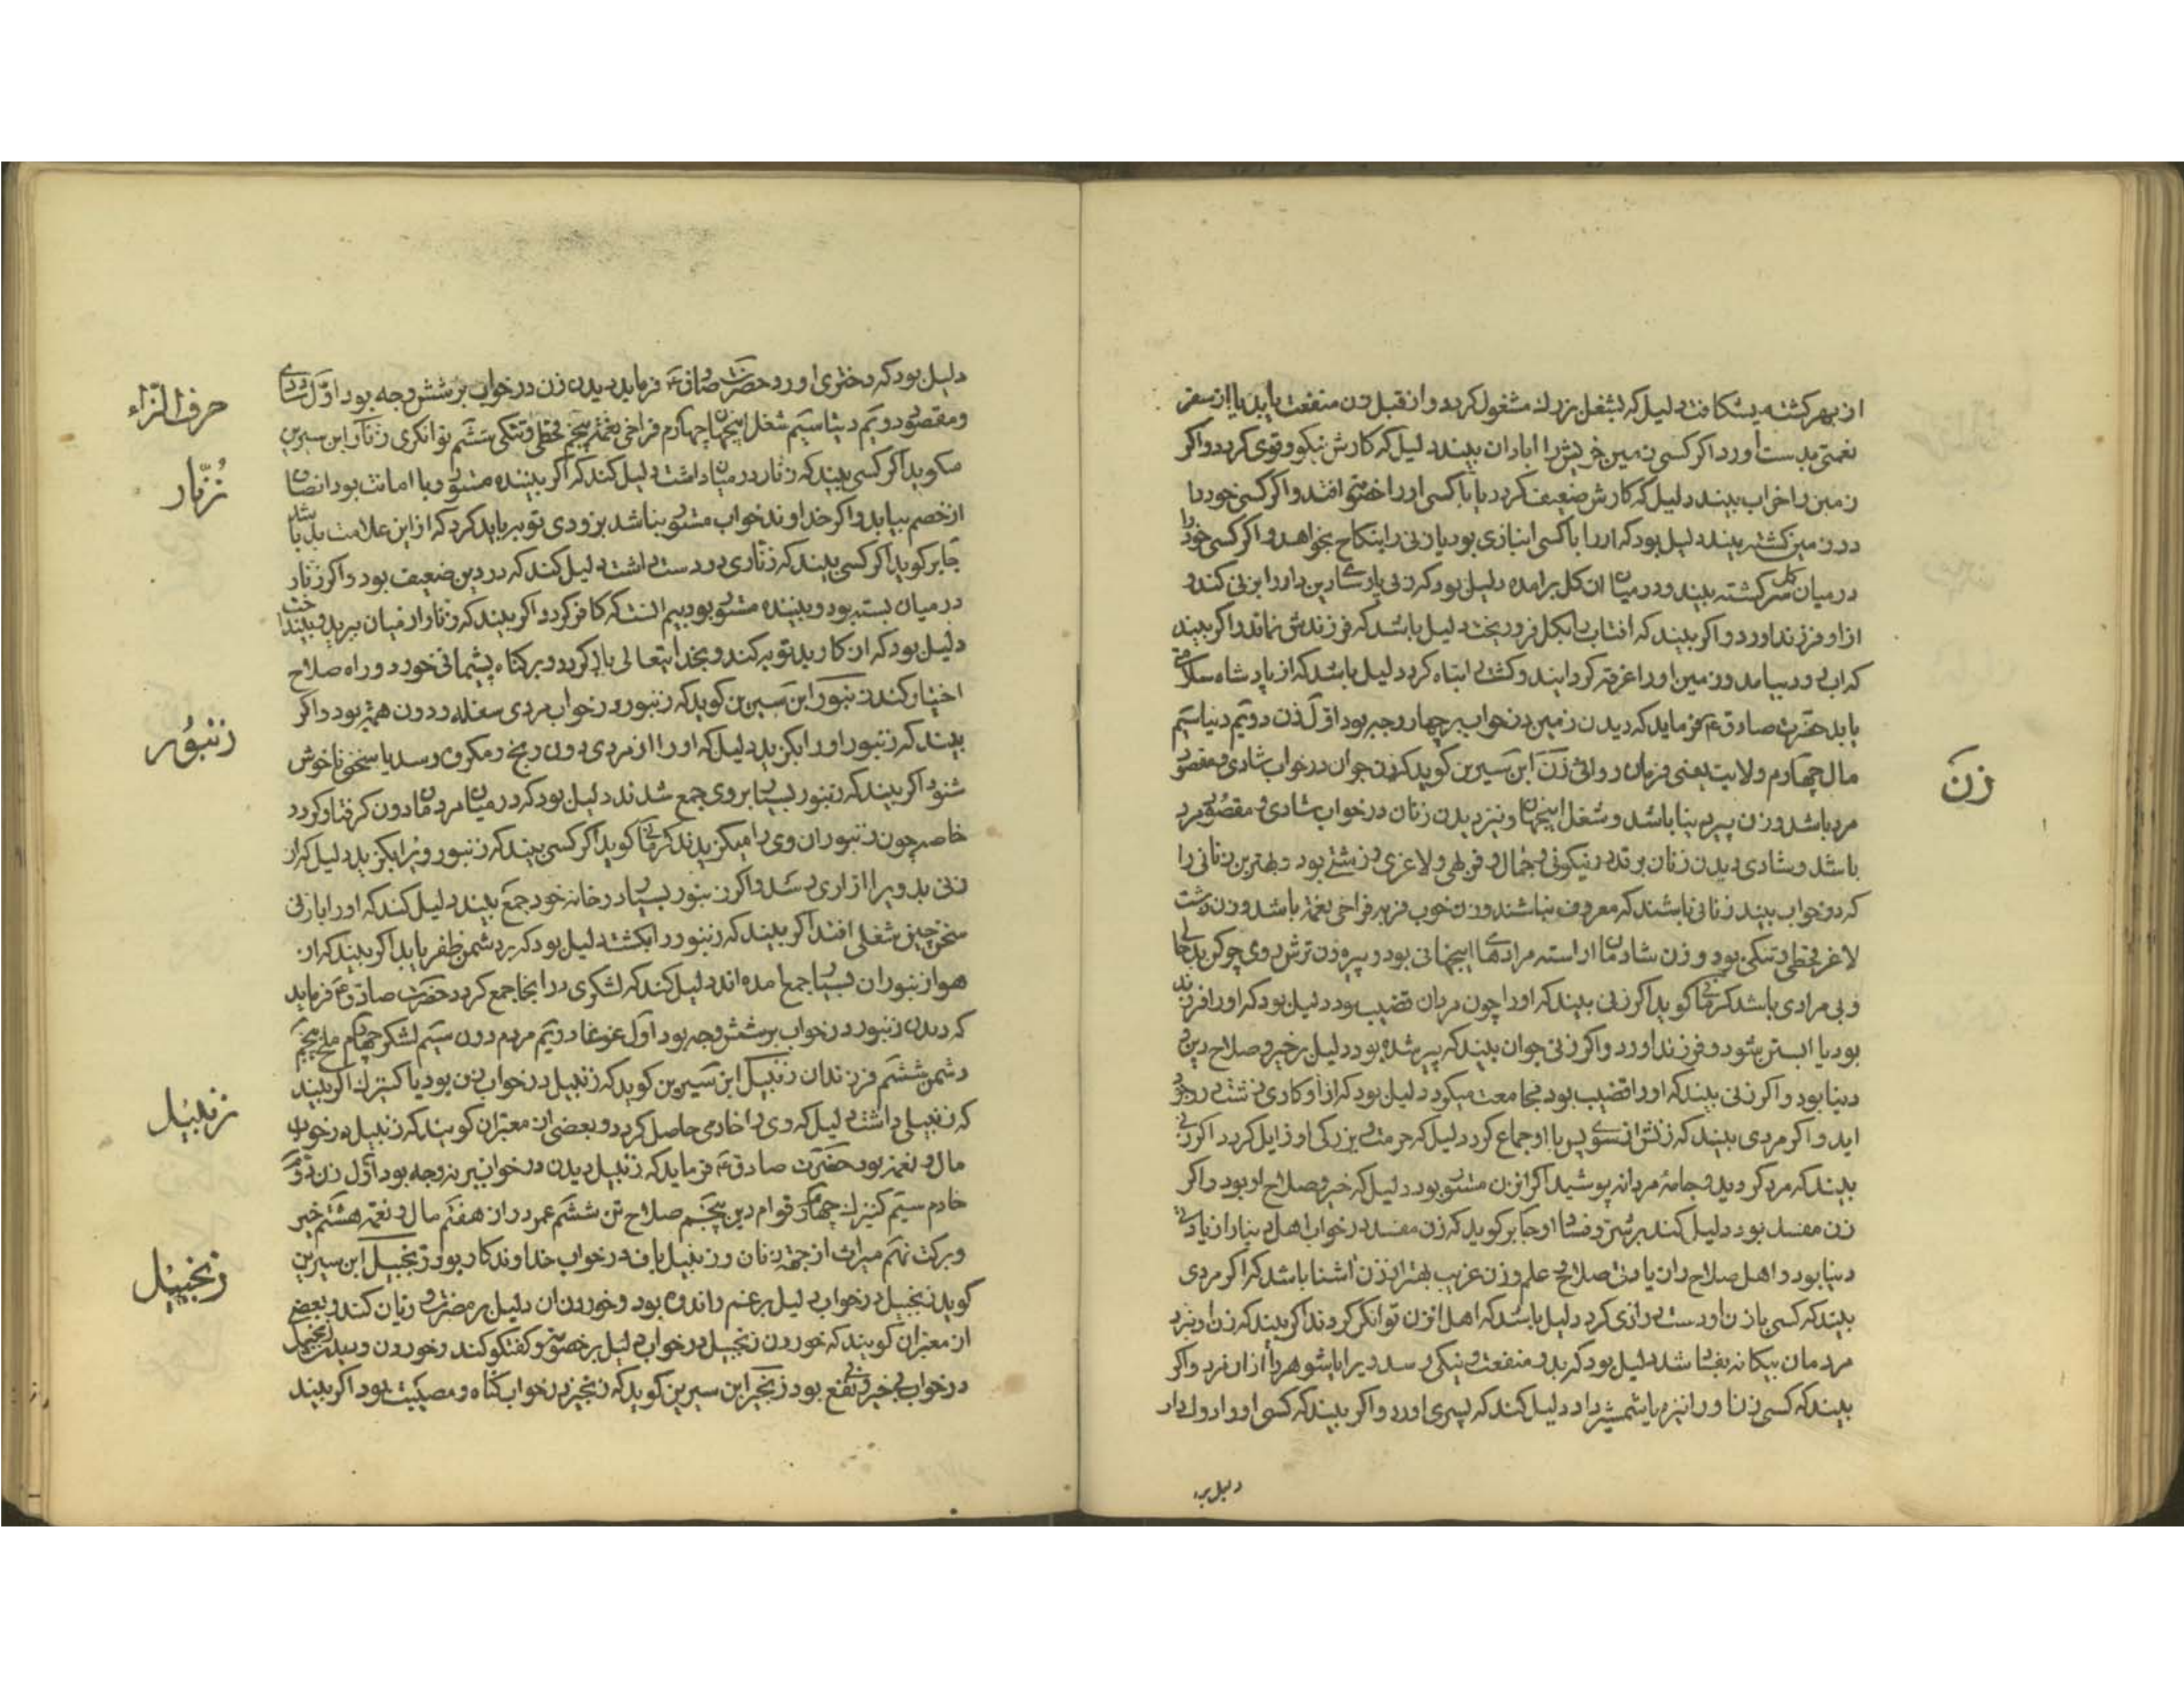 از بهر کشته یشکافت دلیل که بشغل بزرك مشغول کردد و از قبل زن منفعت یابد یا از سفر
نعمتی بدست آورد اکر کسی زمین خویش را ابادان بیند دلیل که کارش نیکو و قوی کردد و اکر
زمین را خراب بیند دلیل که کارش ضعیف کردد یا با کسی او را خصومت افتد و اکر کسی خود را
در زمین کشته بیند دلیل بود که او را با کسی انبازی بود یا زنی را بنکاح بخواهد و اکر کسی خود را
در میان کل سر کشته بیند و در میان ان کل برامده دلیل بود که زنی پارسا دین دار را بزنی کند و
از او فرزند اورد و اکر بیند که افتاب بکل فرو ریخت دلیل باشد که فرزندش نماند و اکر بیند
که ابی در بیامد و زمین او را غرقه کردانید و کشت تباه کرد دلیل باشد که از پادشاه سلامتی
یابد حضرت صادق ع فرماید که دیدن زمین در خواب بر چهار وجه بود اول زن دویم دنیا سیم
مال چهارم ولایت یعنی فرمان روائی زن ابن سیرین کوید که زن جوان در خواب شادی و مقصود
زن
مرد باشد و زن پیر دنیا باشد و شغل اینجهان و نیز دیدن زنان در خواب شادی و مقصود مرد
باشد و شادی دیدن زنان بر قدر نیکوئی و جمال و فربهی و لاغری و زشتی بود و بهترین زنانی را
که در خواب بیند زنانی باشند که معروف نباشند و زن خوب فربه فراخی نعمة باشد و زن زشت
لاغر قحطی و تنکی بود و زن شادمان اراسته مرادهای اینجهانی بود و پیره زن ترش روی چرکن بدحالی
و بی مرادی باشد کرمانی کوید اکر زنی بیند که او را چون مردان قضیب بود دلیل بود که او را فرزند
بود یا ابستن شود و فرزند اورد و اکر زنی جوان بیند که پیر شده بود دلیل بر خیر و صلاح دین و
دنیا بود و اکر زنی بیند که او را قضیب بود و مجامعت میکرد دلیل بود که از او کاری زشت در وجود
اید و اکر مردی بیند که زنش از سوی پس با او جماع کرد دلیل که حرمت و بزرکی او زایل کردد اکر زنی
بیند که مرد کردید و جامهٔ مردانه پوشید اکر انزن مستور بود دلیل که خیر و صلاح او بود و اکر
زن مفسد بود دلیل کند بر شر و فساد او جابر کوید که زن مفسد در خواب اهل دنیا را زیادتی
دنیا بود و اهل صلاح را زیادتی صلاح و علم و زن غریب بهتر از زن اشنا باشد که اکر مردی
بیند که کسی با زن او دست درازی کرد دلیل باشد که اهل انزن توانکر کردند اکر بیند که زن او نزد
مردمان بیکانه بفساد شد دلیل بود که بدو منفعت و نیکی رسد و یرا با شوهر داد ازان نرد و اکر
بیند که کسی زن او را نیزه یا شمشیر داد دلیل کند که پسری اورد و اکر بیند که کسی او را دوك داد
دلیل بر
دلیل بود که دختری اورد حضرت صادق ع فرماید دیدن زن در خواب بر شش وجه بود اول شادی
حرف الزاء
و مقصود دویم دنیا سیم شغل اینجهان چهارم فراخی نعمة پنجم قحطی و تنکی ششم توانکری زنار ابن سیرین
زنّار
میکوید اکر کسی بیند که زنار در میان داشت دلیل کند که اکر بیننده مستور و با امانت بود انصاف
از خصم بیابد و اکر خداوند خواب مستور نباشد بزودی توبه باید کرد که از این علامت بد باشد
جابر کوید اکر کسی بیند که زناری در دست داشت دلیل کند که در دین ضعیف بود و اکر زنار
در میان بسته بود و بیننده مستور بود بیم انست که کافر کردد اکر بیند که زنار از میان ببرید و بینداخت
دلیل بود که از کار بد توبه کند و بخدایتعالی باز کردد و بر کناه پشیمانی خورد و راه صلاح
اختیار کند زنبور ابن سیرین کوید که زنبور در خواب مردی سفله و دون همت بود و اکر
زنبور
بیند که زنبور او را بکزید دلیل که او را از مردی دون رنج و مکروه رسد یا سخن ناخوش
شنود اکر بیند که زنبور بسیار بر وی جمع شدند دلیل بود که در میان مردمان دون کرفتار کردد
خاصه چون زنبوران وی را میکزیدند کرمانی کوید اکر کسی بیند که زنبور ویرا بکزید دلیل که از
زنی بد ویرا ازاری رسد و اکر زنبور بسیار در خانه خود جمع بیند دلیل کند که او را با زنی
سخن چین شغلی افتد اکر بیند که زنبور را بکشت دلیل بود که بر دشمن ظفر یابد اکر بیند که از
هوا زنبوران بسیار جمع امده اند دلیل کند که لشکری در انجا جمع کردد حضرت صادق ع فرماید
که دیدن زنبور در خواب بر شش وجه بود اول غوغا دویم مردم دون سیم لشکر چهارم ملخ پنجم
دشمن ششم فرزندان زنبیل ابن سیرین کوید که زنبیل در خواب زن بود یا کنیزك اکر بیند
زنبیل
که زنبیلی داشت دلیل که وی را خادمی حاصل کردد و بعضی از معبران کویند که زنبیل در خواب
مال و نعمة بود حضرت صادق ع فرماید که زنبیل دیدن در خواب بر نه وجه بود اول زن دویم
خادم سیم کنیزك چهارم قوام دین پنجم صلاح تن ششم عمر دراز هفتم مال و نعمة هشتم خیر
و برکت نهم میراث از جهة زنان و زنبیل باف در خواب خداوند کار بود زنجبیل ابن سیرین
زنجبیل
کوید زنجبیل در خواب دلیل بر غم و اندوه بود و خوردن ان دلیل بر مضرت و زیان کند و بعضی
از معبران کویند که خوردن زنجبیل در خواب دلیل بر خصومت و کفتکو کند و خوردن و دیدن زنجبیل
در خواب بی خیر و بی نفع بود زنجیر ابن سیرین کوید که زنجیر در خواب کناه و معصیت بود اکر بیند